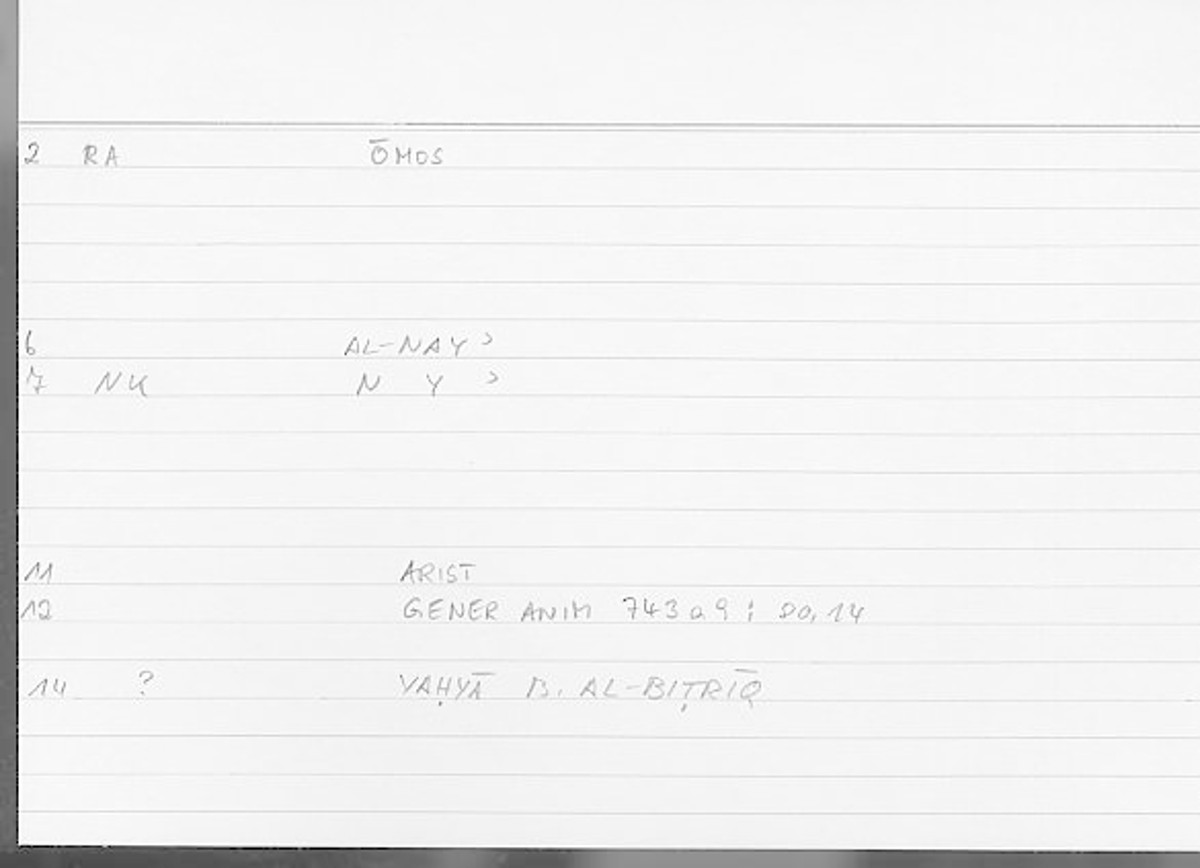 2 RA ŌMOS
6 AL-NAYʾ
7 NK N Y ʾ
11 ARIST
12 GENER ANIM 743a9; 80,14
14 ? YAḤYĀ B. AL-BIṬRĪQ